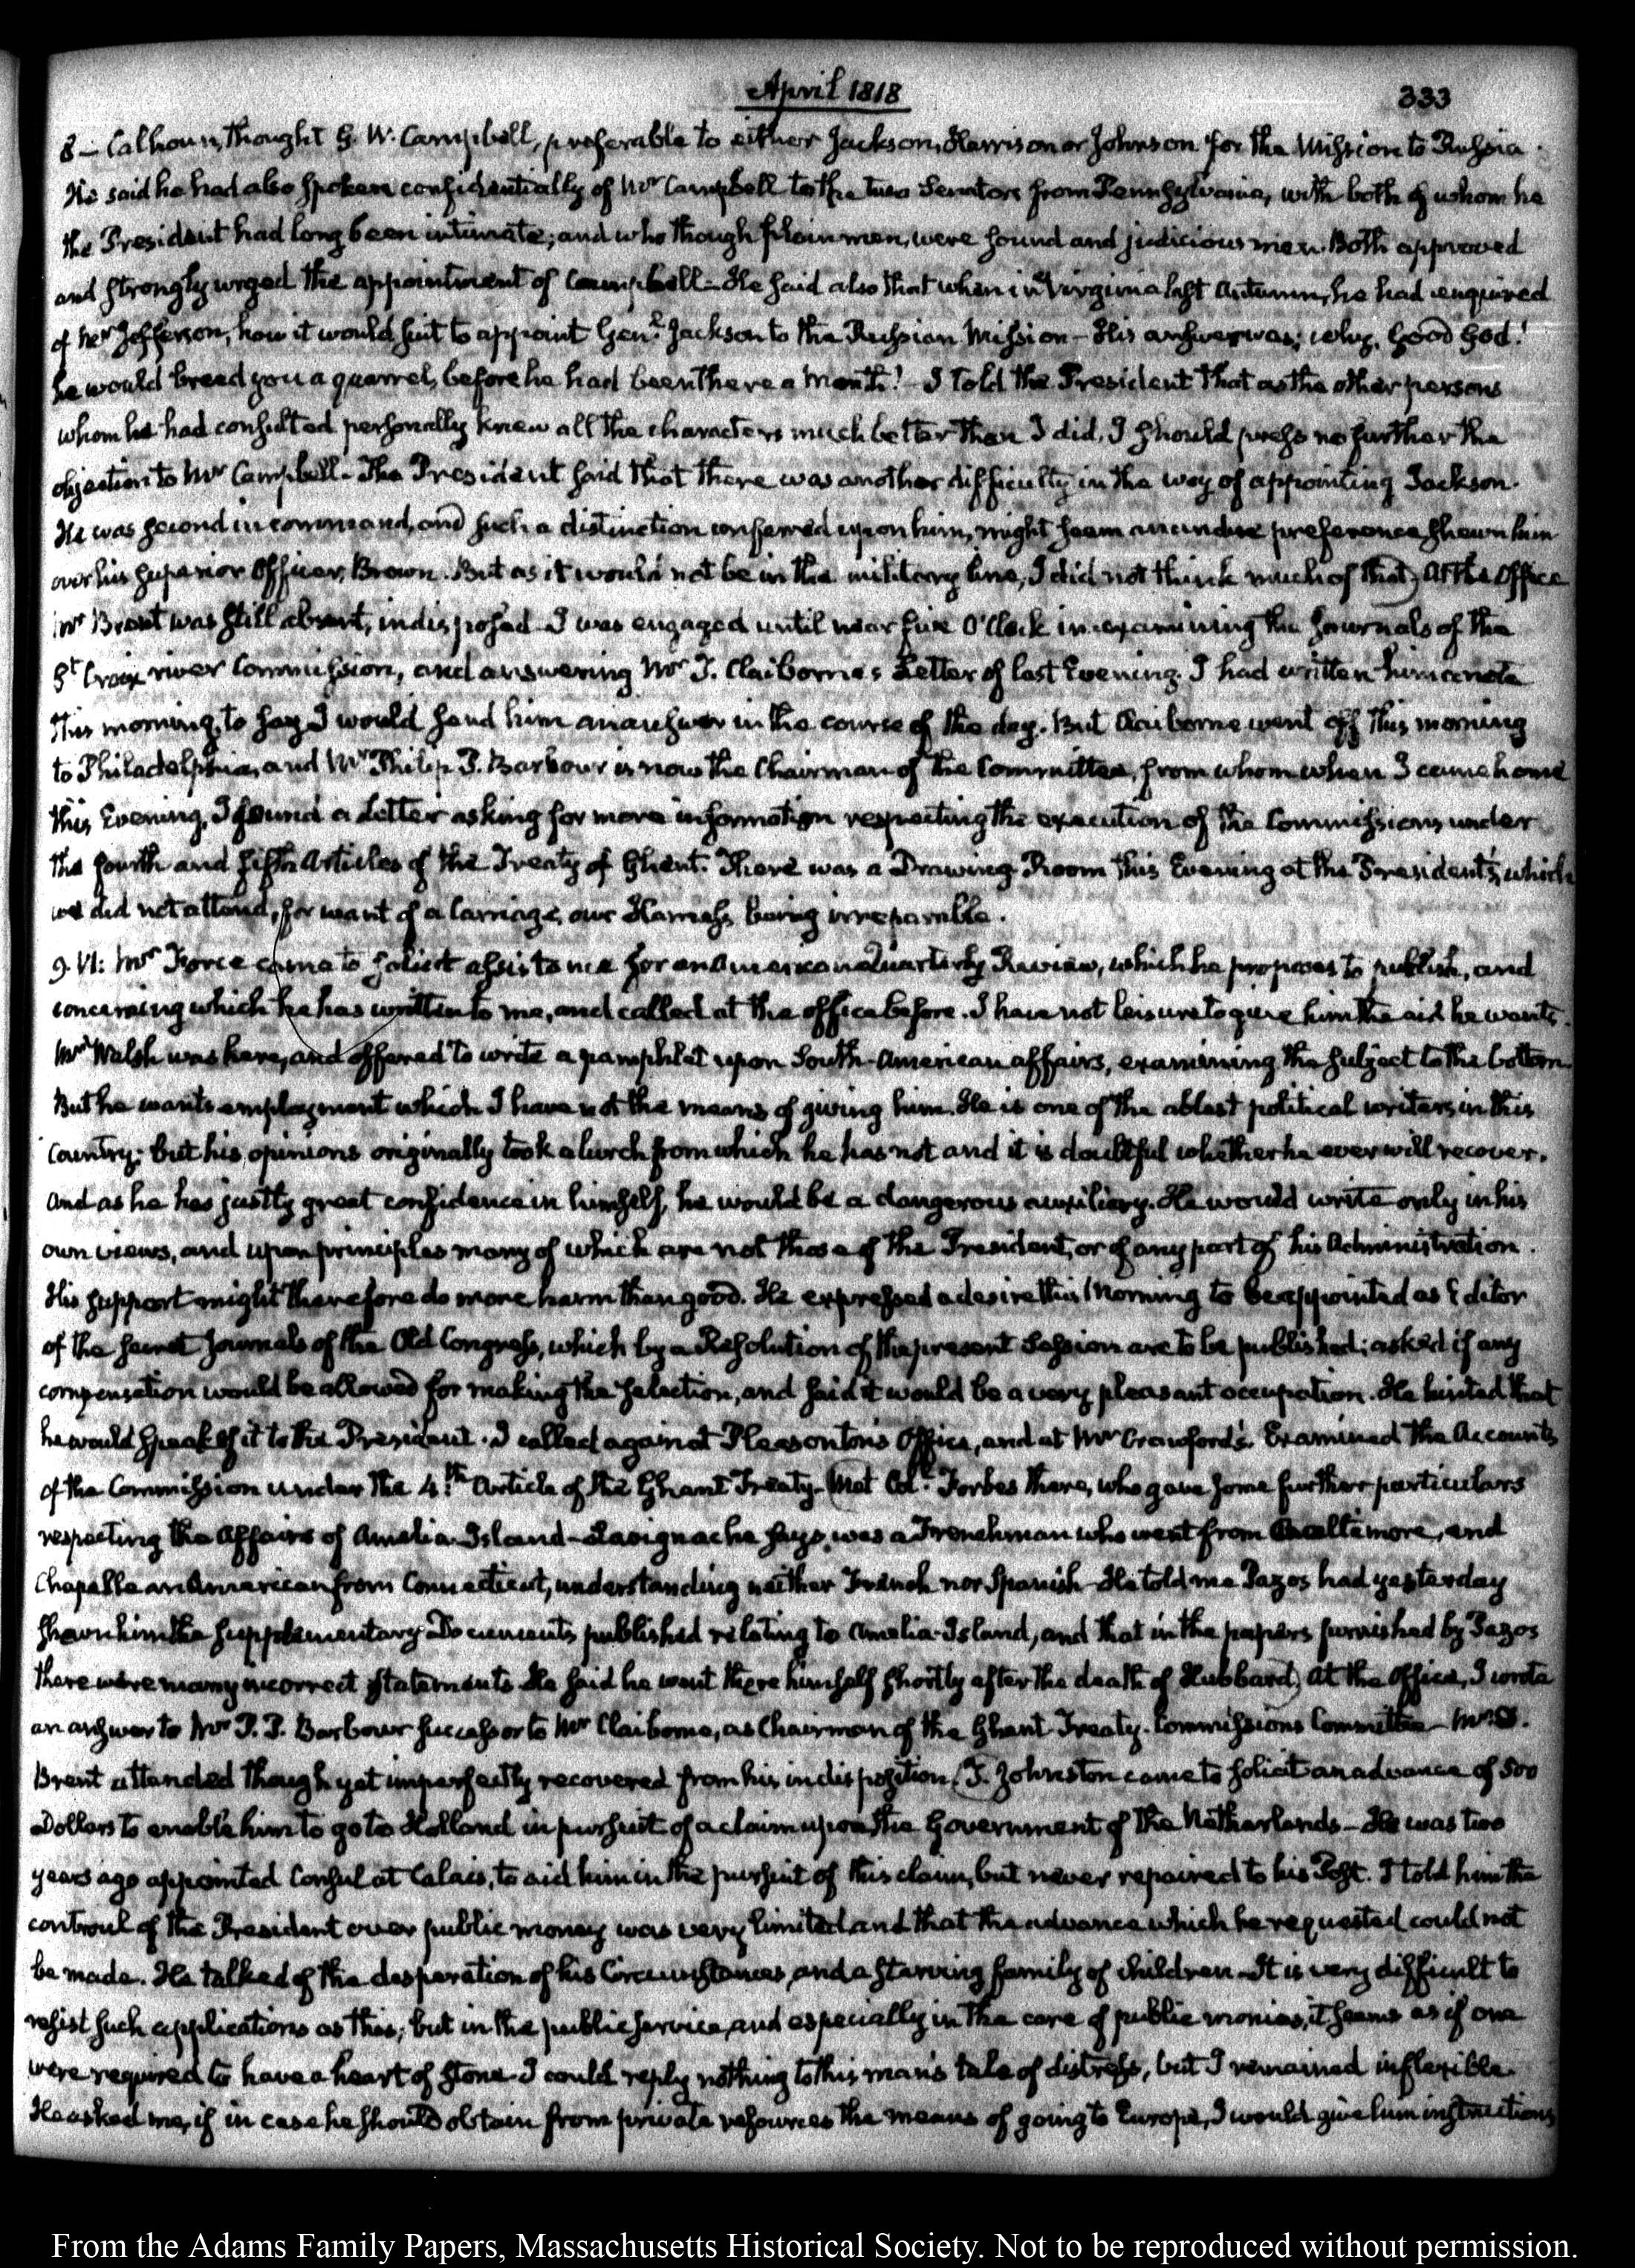 April 1818
333
8 — Calhoun, thought G. W. Campbell, preferable to either Jackson, Harrison or Johnson for the Mission to Russia.
He said he had also spoken confidentially of Mr Campbell to the two Senators from Pennsylvania, with both of whom he
the President had long been intimate; and who though plain men, were sound and judicious men. Both approved
and strongly urged the appointment of Campbell — He said also that when in Virginia last Autumn, he had enquired
of Mr Jefferson, how it would suit to appoint Genl. Jackson to the Russian Mission — His answer was; why, good God!
he would breed you a quarrel, before he had been there a Month! — I told the President that as the other persons
whom he had consulted personally knew all the characters much better than I did, I should press no further the
objection to Mr Campbell — The President said that there was another difficulty in the way of appointing Jackson.
He was second in command, and such a distinction conferred upon him, might seem an undue preference shewn him
over his superior Officer, Brown. But as it would not be in the military line, I did not think much of that. At the Office
Mr Brent was still absent, indisposed — I was engaged until near five O'Clock in examining the Journals of the
St Croix river Commission, and answering Mr T. Claiborne's Letter of last Evening. I had written him a note
this morning, to say I would send him an answer in the course of the day. But Claiborne went off this morning
to Philadelphia, and Mr Philip P. Barbour is now the Chairman of the Committee, from whom when I came home
this Evening, I found a Letter asking for more information respecting the execution of the Commissions under
the fourth and fifth Articles of the Treaty of Ghent. There was a Drawing Room this Evening at the President's, which
we did not attend, for want of a Carriage, our Harness being irreparable.
9. VI: Mr Force came to solicit assistance for an American Quarterly Review, which he proposes to publish, and
concerning which he has written to me, and called at the office before. I have not leisure to give him the aid he wants.
Mr Walsh was here, and offered to write a pamphlet upon South-American affairs, examining the subject to the bottom.
But he wants employment which I have not the means of giving him. He is one of the ablest political writers in this
Country: but his opinions originally took a lurch from which he has not and it is doubtful whether he ever will recover.
And as he has justly great confidence in himself, he would be a dangerous auxiliary. He would write only in his
own views, and upon principles many of which are not those of the President, or of any part of his Administration.
His support might therefore do more harm than good. He expressed a desire this Morning to be appointed as Editor
of the secret Journals of the Old Congress, which by a Resolution of the present Session are to be published; asked if any
compensation would be allowed for making the selection, and said it would be a very pleasant occupation. He hinted that
he would speak of it to the President. I called again at Pleasonton's Office, and at Mr Crawford's. Examined the Accounts
of the Commission under the 4th. Article of the Ghent Treaty — Met Coll. Forbes there, who gave some further particulars
respecting the Affairs of Amelia Island — Lavignac he says, was a Frenchman who went from Baltimore, and
Chapelle an American from Connecticut, understanding neither French nor Spanish — He told me Pazos had yesterday
shewn him the supplementary Documents published relating to Amelia-Island, and that in the papers furnished by Pazos
there were many incorrect statements. He said he went there himself shortly after the death of Hubbard. At the Office, I wrote
an answer to Mr P. P. Barbour successor to Mr Claiborne, as Chairman of the Ghent Treaty Commissions Committee — Mr D.
Brent attended though yet imperfectly recovered from his indisposition. T. Johnston came to solicit an advance of 500
Dollars to enable him to go to Holland in pursuit of a claim upon the Government of the Netherlands — He was two
years ago appointed Consul at Calais, to aid him in the pursuit of this claim, but never repaired to his Post. I told him the
controul of the President over public money was very limited and that the advance which he requested could not
be made. He talked of the desperation of his Circumstances, and a starving family of children — It is very difficult to
resist such applications as this; but in the public service, and especially in the care of public monies, it seems as if one
were required to have a heart of stone. I could reply nothing to this man's tale of distress, but I remained inflexible.
He asked me, if in case he should obtain from private resources the means of going to Europe, I would give him instructions
From the Adams Family Papers, Massachusetts Historical Society. Not to be reproduced without permission.